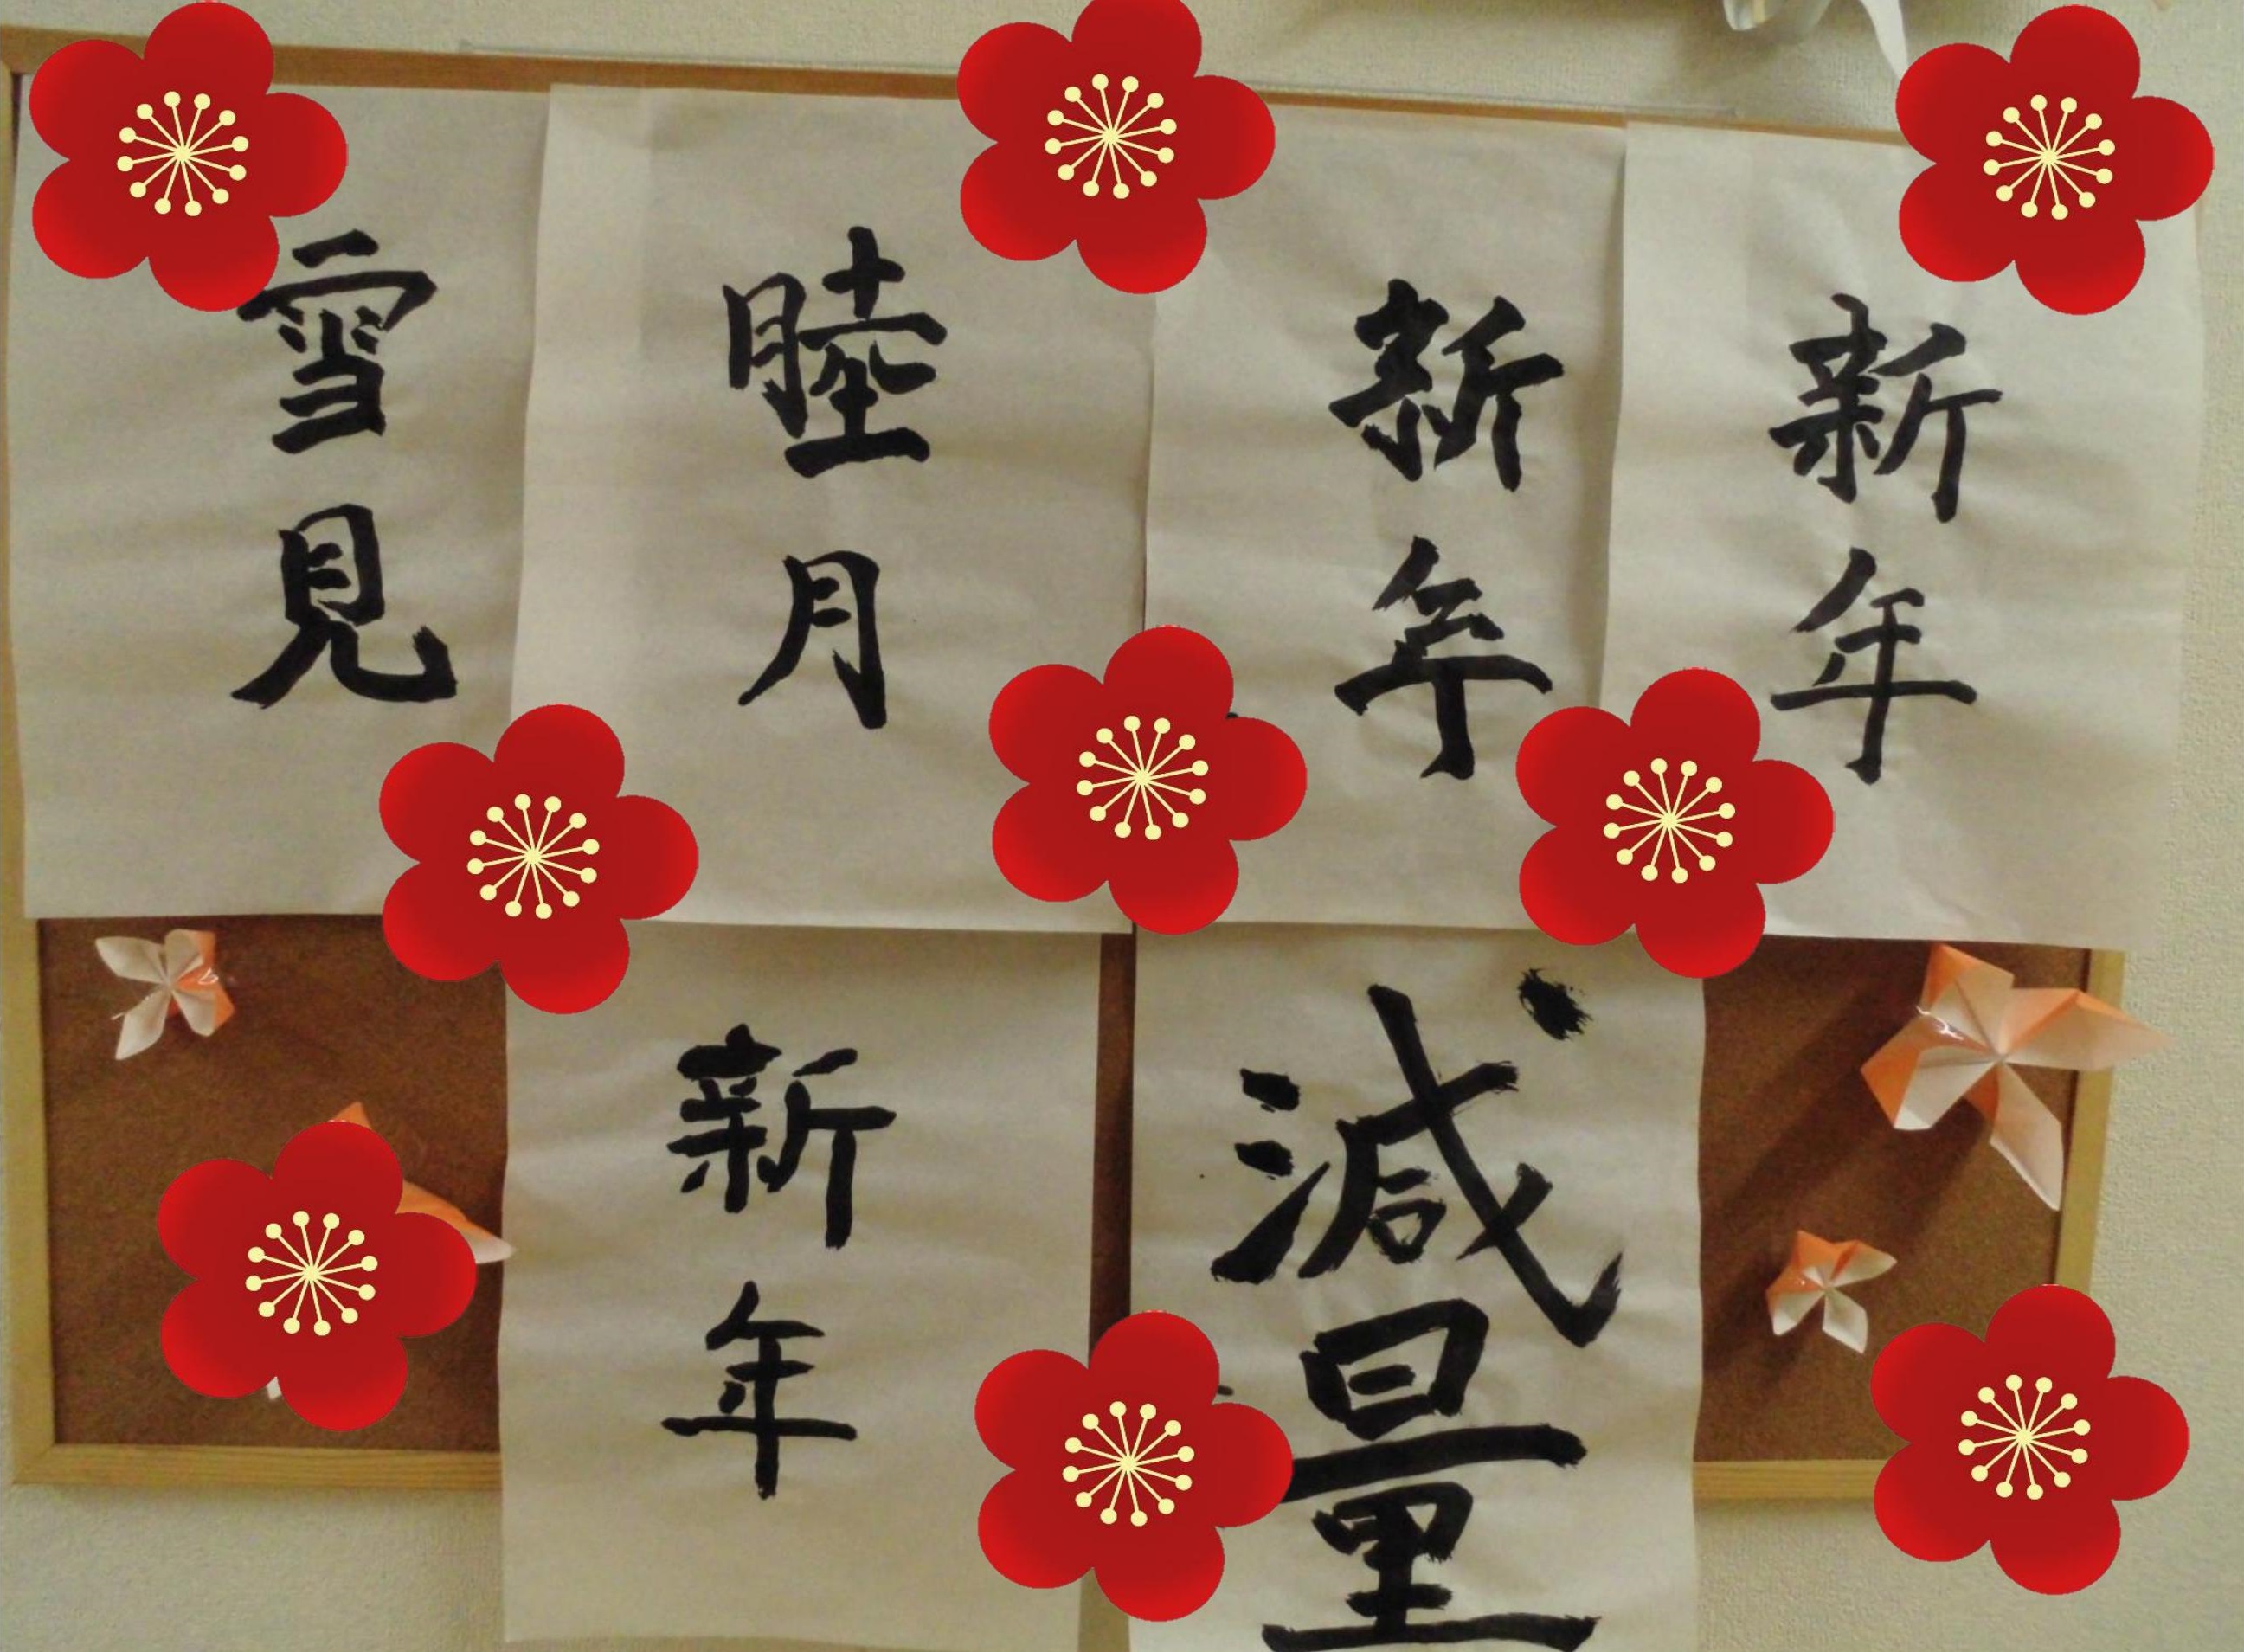 新年
新年
睦月
雪見
減量
新年